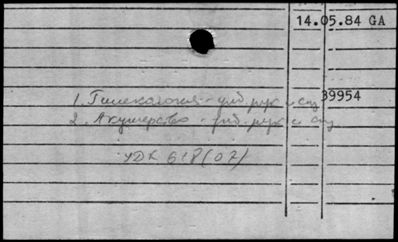 14.05.84 GA
39954
1. Гинекология - учеб. рук. и спец
2. Акушерство - учеб. рук. и спец
УДК 618(07)